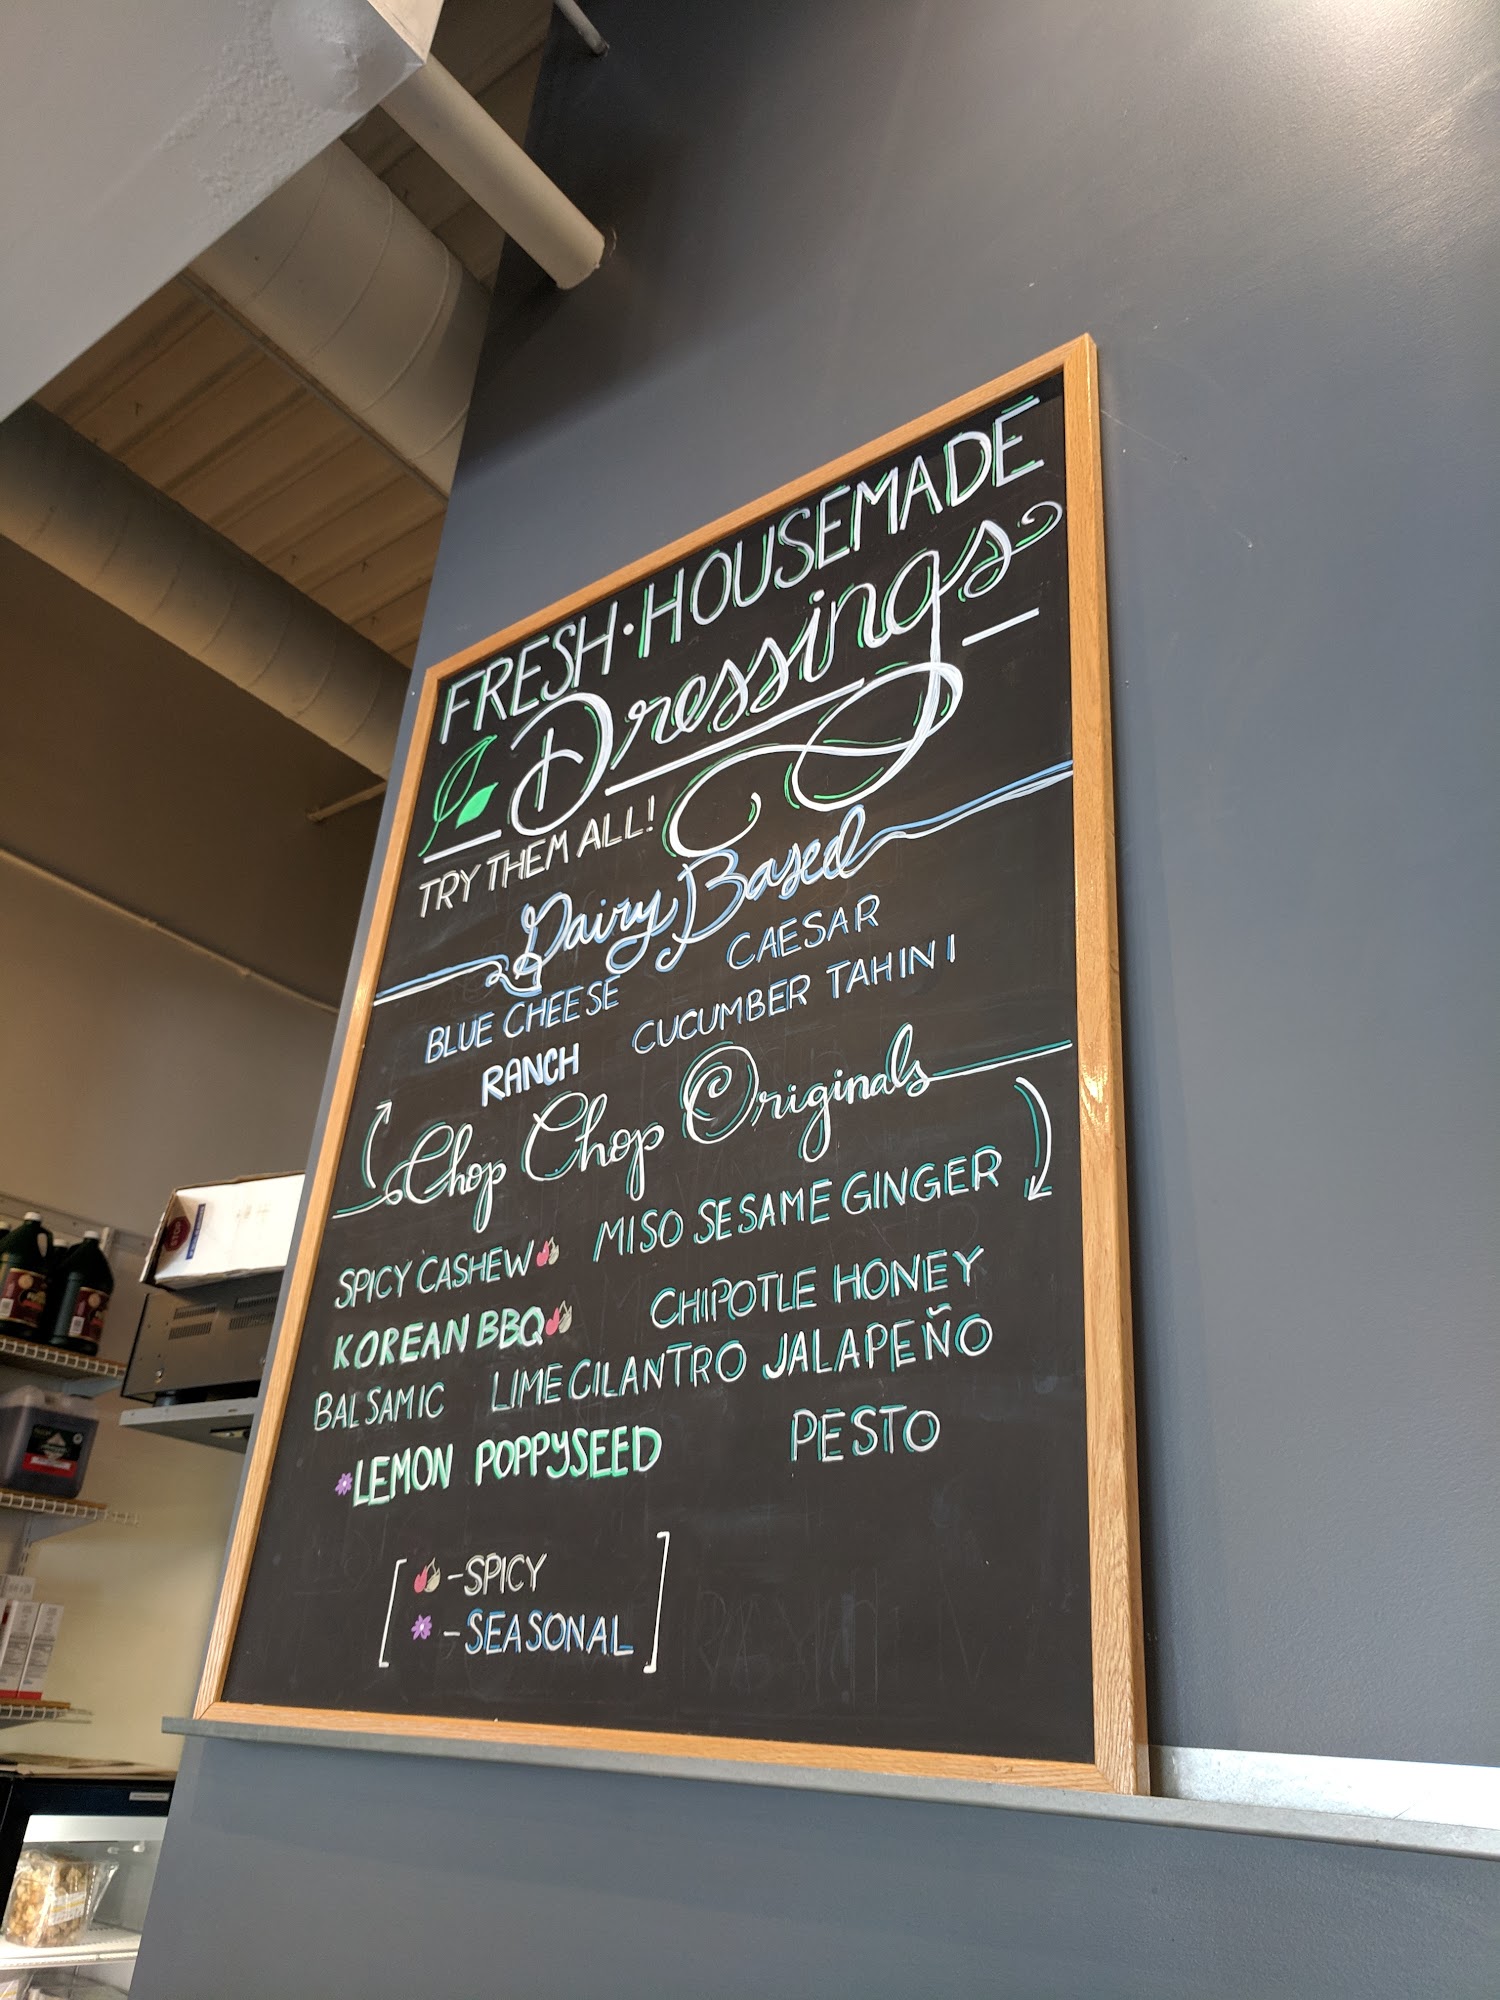 FRESH·HOUSEMADE
Dressings
TRY THEM ALL!
Dairy Based
BLUE CHEESE CAESAR
RANCH CUCUMBER TAHINI
Chop Chop Originals
SPICY CASHEW MISO SESAME GINGER
KOREAN BBQ CHIPOTLE HONEY
BALSAMIC LIME CILANTRO JALAPEÑO
LEMON POPPYSEED PESTO
-SPICY
-SEASONAL
STOP